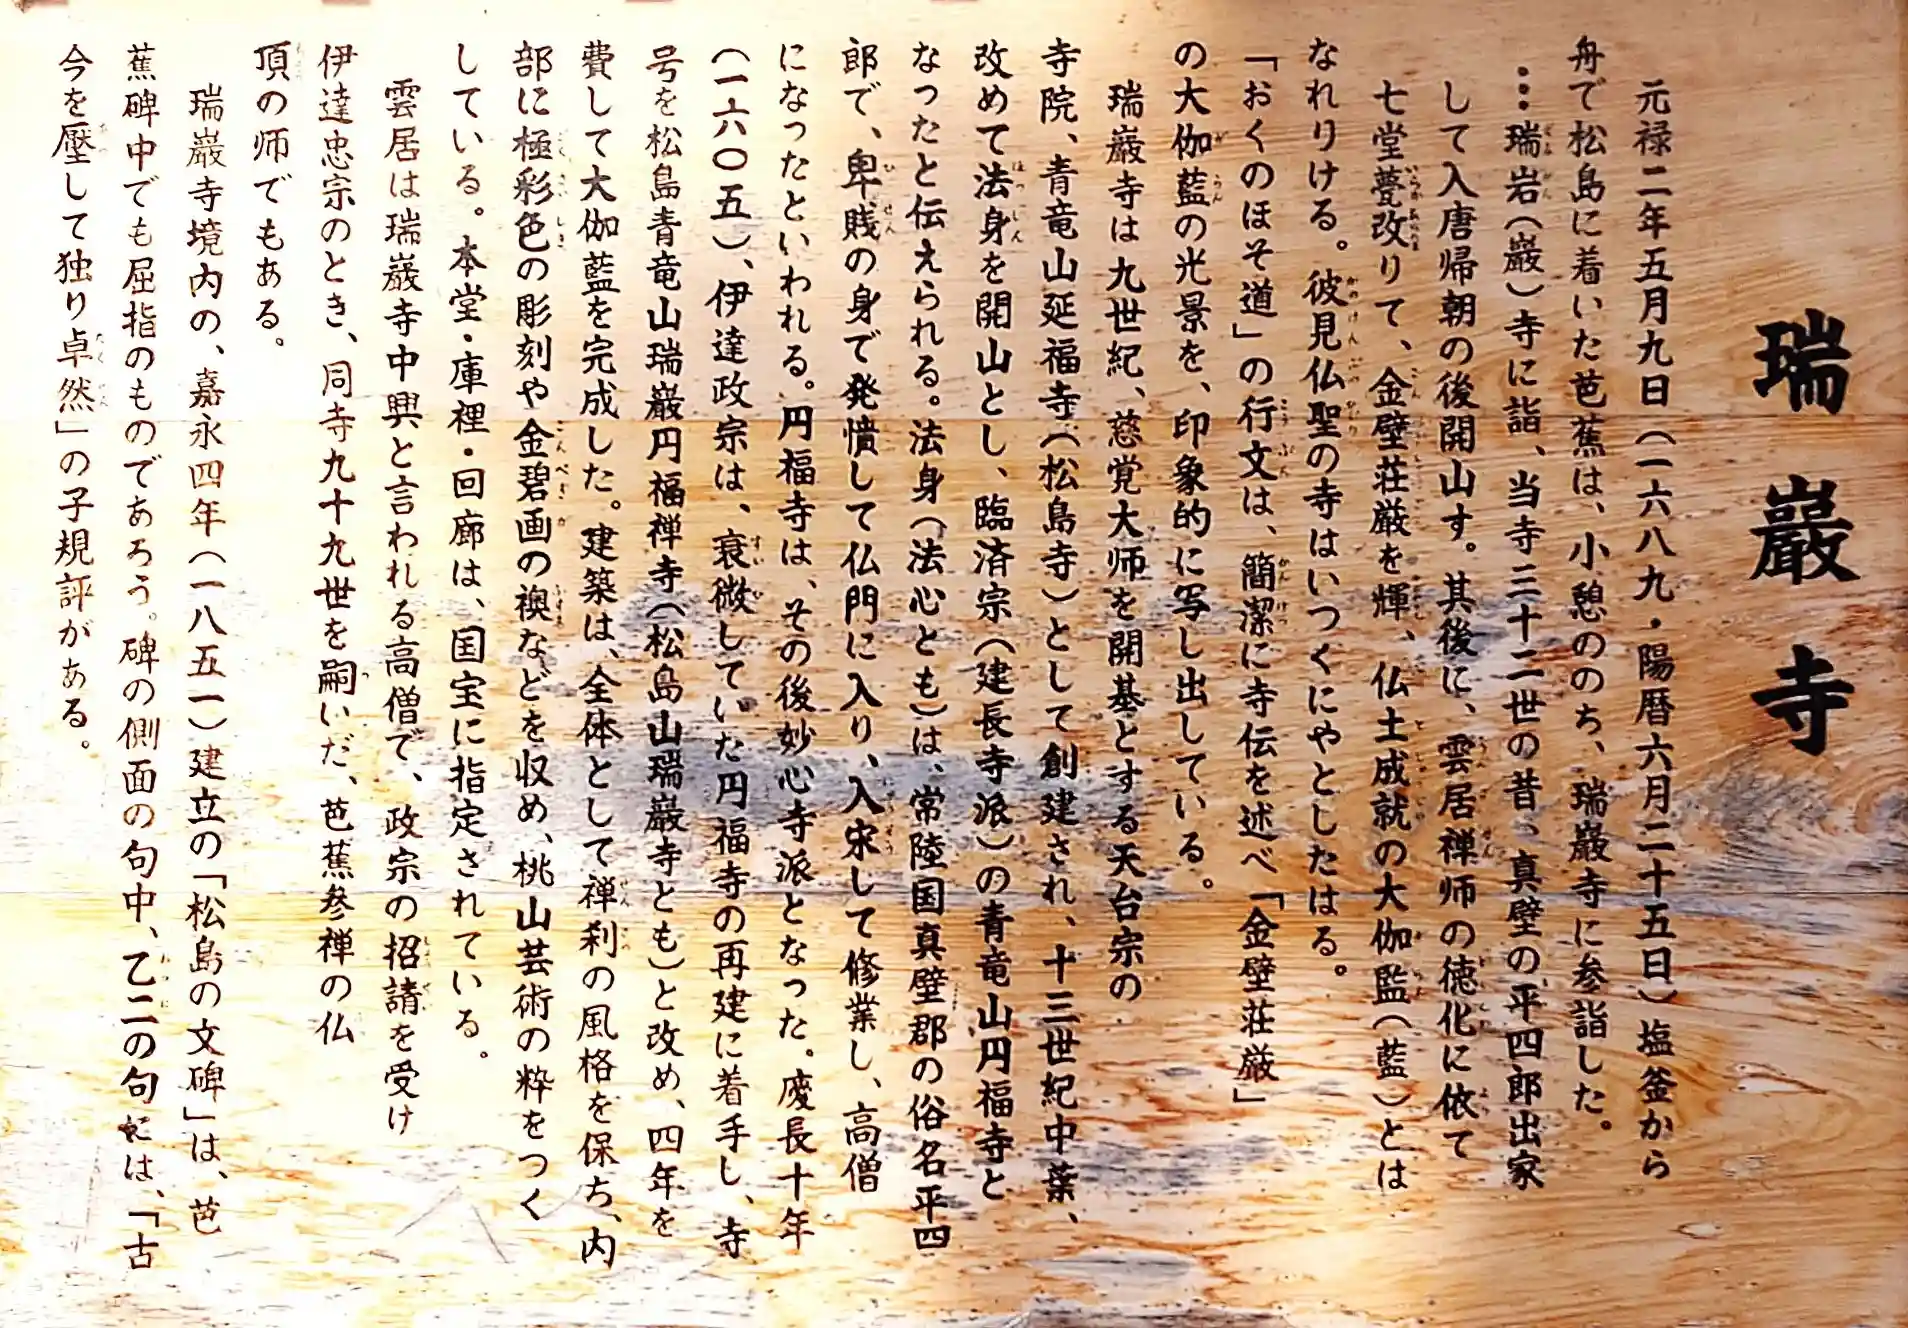 瑞巌寺
元禄二年五月九日(一六八九・陽暦六月二十五日)塩釜から
舟で松島に着いた芭蕉は、小憩ののち、瑞巌寺に参詣した。
…瑞岩(巌)寺に詣、当寺三十二世の昔、真壁の平四郎出家
して入唐帰朝の後開山す。其後に、雲居禅师の徳化に依て
七堂甍改りて、金壁荘厳を輝、仏土成就の大伽監(藍)とは
なれりける。彼見仏聖の寺はいつくにやとしたはる。
「おくのほそ道」の行文は、簡潔に寺伝を述べ「金壁荘厳」
の大伽藍の光景を、印象的に写し出している。
瑞巌寺は九世紀、慈覚大师を開基とする天台宗の
寺院、青竜山延福寺(松島寺)として創建され、十三世紀中葉、
改めて法身を開山とし、臨済宗(建長寺派)の青竜山円福寺と
なったと伝えられる。法身(法心とも)は、常陸国真壁郡の俗名平四
郎で、卑賎の身で発憤して仏門に入り、入宋して修業し、高僧
になったといわれる。円福寺は、その後妙心寺派となった。慶長十年
(一六〇五)、伊達政宗は、衰微していた円福寺の再建に着手し、寺
号を松島青竜山瑞巌円福禅寺(松島山瑞巌寺とも)と改め、四年を
費して大伽藍を完成した。建築は、全体として禅刹の風格を保ち、内
部に極彩色の彫刻や金碧画の襖などを収め、桃山芸術の粋をつく
している。本堂・庫裡・回廊は、国宝に指定されている。
雲居は瑞巌寺中興と言われる高僧で、政宗の招請を受け
伊達忠宗のとき、同寺九十九世を嗣いだ、芭蕉参禅の仏
頂の师でもある。
瑞巌寺境内の、嘉永四年(一八五一)建立の「松島の文碑」は、芭
蕉碑中でも屈指のものであろう。碑の側面の句中、乙二の句には、「古
今を壓して独り卓然」の子規評がある。